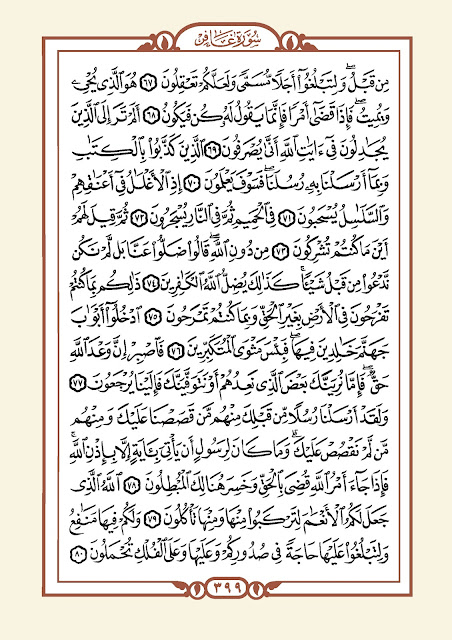 سُورَةُ غَافِرٍ
مِن قَبْلُ ۖ وَلِتَبْلُغُوٓا۟ أَجَلًا مُّسَمًّى وَلَعَلَّكُمْ تَعْقِلُونَ ﴿٦٧﴾ هُوَ ٱلَّذِى يُحْىِۦ
وَيُمِيتُ ۖ فَإِذَا قَضَىٰٓ أَمْرًا فَإِنَّمَا يَقُولُ لَهُۥ كُن فَيَكُونُ ﴿٦٨﴾ أَلَمْ تَرَ إِلَى ٱلَّذِينَ
يُجَـٰدِلُونَ فِىٓ ءَايَـٰتِ ٱللَّهِ أَنَّىٰ يُصْرَفُونَ ﴿٦٩﴾ ٱلَّذِينَ كَذَّبُوا۟ بِٱلْكِتَـٰبِ
وَبِمَآ أَرْسَلْنَا بِهِۦ رُسُلَنَا ۖ فَسَوْفَ يَعْلَمُونَ ﴿٧٠﴾ إِذِ ٱلْأَغْلَـٰلُ فِىٓ أَعْنَـٰقِهِمْ
وَٱلسَّلَـٰسِلُ يُسْحَبُونَ ﴿٧١﴾ فِى ٱلْحَمِيمِ ثُمَّ فِى ٱلنَّارِ يُسْجَرُونَ ﴿٧٢﴾ ثُمَّ قِيلَ لَهُمْ
أَيْنَ مَا كُنتُمْ تُشْرِكُونَ ﴿٧٣﴾ مِن دُونِ ٱللَّهِ ۖ قَالُوا۟ ضَلُّوا۟ عَنَّا بَل لَّمْ نَكُن
نَّدْعُوا۟ مِن قَبْلُ شَيْـًٔا ۚ كَذَٰلِكَ يُضِلُّ ٱللَّهُ ٱلْكَـٰفِرِينَ ﴿٧٤﴾ ذَٰلِكُم بِمَا كُنتُمْ
تَفْرَحُونَ فِى ٱلْأَرْضِ بِغَيْرِ ٱلْحَقِّ وَبِمَا كُنتُمْ تَمْرَحُونَ ﴿٧٥﴾ ٱدْخُلُوٓا۟ أَبْوَٰبَ
جَهَنَّمَ خَـٰلِدِينَ فِيهَا ۖ فَبِئْسَ مَثْوَى ٱلْمُتَكَبِّرِينَ ﴿٧٦﴾ فَٱصْبِرْ إِنَّ وَعْدَ ٱللَّهِ
حَقٌّ ۚ فَإِمَّا نُرِيَنَّكَ بَعْضَ ٱلَّذِى نَعِدُهُمْ أَوْ نَتَوَفَّيَنَّكَ فَإِلَيْنَا يُرْجَعُونَ ﴿٧٧﴾
وَلَقَدْ أَرْسَلْنَا رُسُلًا مِّن قَبْلِكَ مِنْهُم مَّن قَصَصْنَا عَلَيْكَ وَمِنْهُم
مَّن لَّمْ نَقْصُصْ عَلَيْكَ ۗ وَمَا كَانَ لِرَسُولٍ أَن يَأْتِىَ بِـَٔايَةٍ إِلَّا بِإِذْنِ ٱللَّهِ ۚ
فَإِذَا جَآءَ أَمْرُ ٱللَّهِ قُضِىَ بِٱلْحَقِّ وَخَسِرَ هُنَالِكَ ٱلْمُبْطِلُونَ ﴿٧٨﴾ ٱللَّهُ ٱلَّذِى
جَعَلَ لَكُمُ ٱلْأَنْعَـٰمَ لِتَرْكَبُوا۟ مِنْهَا وَمِنْهَا تَأْكُلُونَ ﴿٧٩﴾ وَلَكُمْ فِيهَا مَنَـٰفِعُ
وَلِتَبْلُغُوا۟ عَلَيْهَا حَاجَةً فِى صُدُورِكُمْ وَعَلَيْهَا وَعَلَى ٱلْفُلْكِ تُحْمَلُونَ ﴿٨٠﴾
٣٩٩